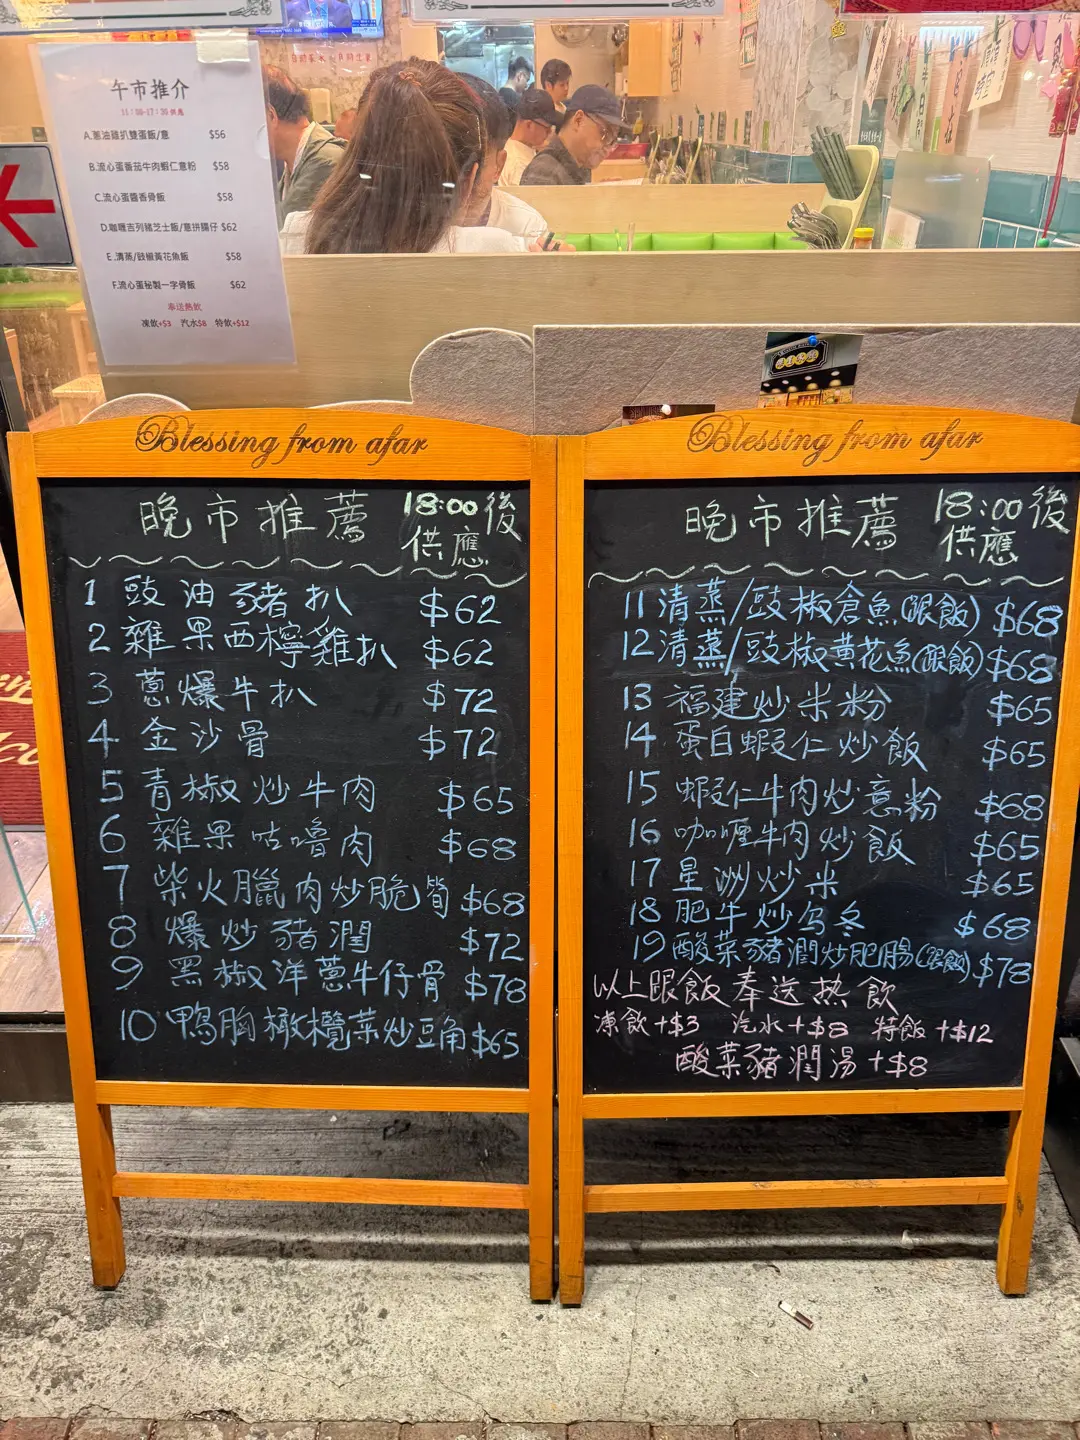 午市推介
11:00-17:30 供應
A.蔥油雞扒雙蛋飯/意 $56
B.流心蛋番茄牛肉蝦仁意粉 $58
C.流心蛋醬香骨飯 $58
D.咖喱吉列豬芝士飯/意拼腸仔 $62
E.清蒸/豉椒黃花魚飯 $58
F.流心蛋秘製一字骨飯 $62
奉送熱飲
凍飲+$3 汽水$8 特飲+$12
Blessing from afar
晚市推薦 18:00後
供應
1 豉油豬扒 $62
2 雜果西檸雞扒 $62
3 蔥爆牛扒 $72
4 金沙骨 $72
5 青椒炒牛肉 $65
6 雜果咕嚕肉 $68
7 柴火臘肉炒脆筍 $68
8 爆炒豬潤 $72
9 黑椒洋蔥牛仔骨 $78
10 鴨胸橄欖菜炒豆角 $65
Blessing from afar
晚市推薦 18:00後
供應
11 清蒸/豉椒倉魚(跟飯) $68
12 清蒸/豉椒黃花魚(跟飯) $68
13 福建炒米粉 $65
14 蛋白蝦仁炒飯 $65
15 蝦仁牛肉炒意粉 $68
16 咖喱牛肉炒飯 $65
17 星洲炒米 $65
18 肥牛炒烏冬 $68
19 酸菜豬潤炒肥腸(跟飯) $78
以上跟飯奉送热飲
凍飲+$3 汽水+$8 特飯+$12
酸菜豬潤湯+$8